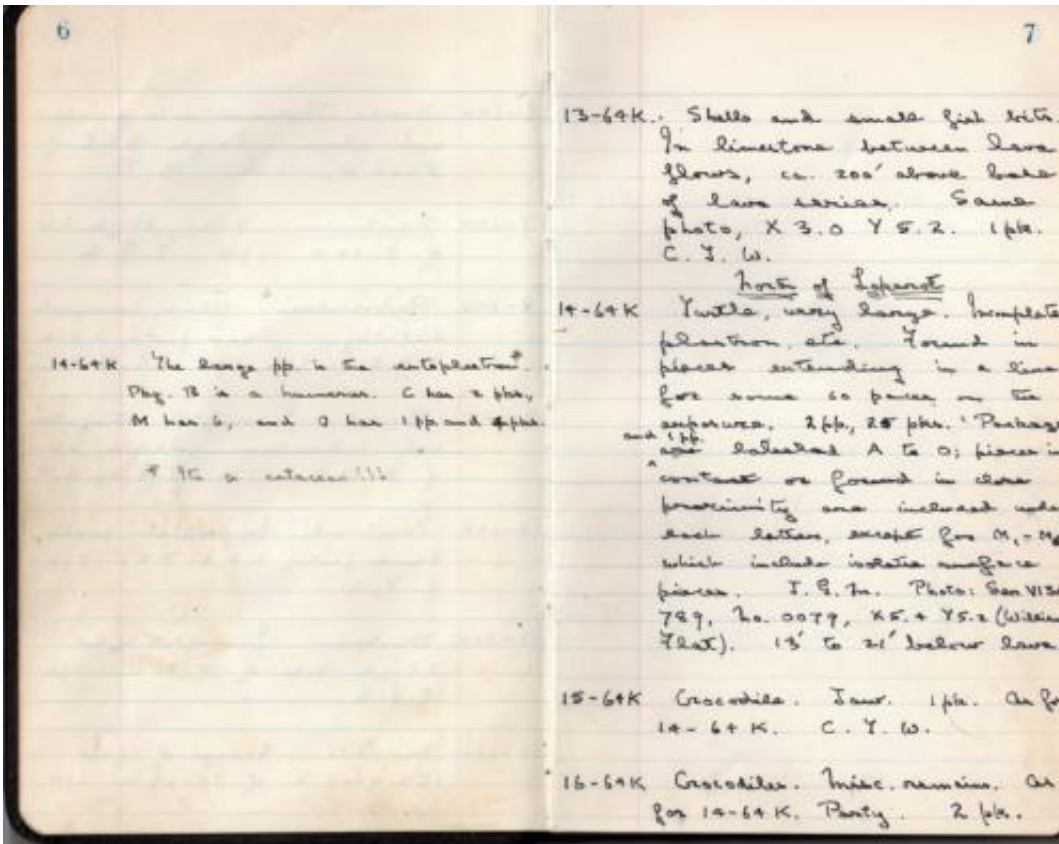 6
14-64K The large pp. is the entoplastron*.
Pkg. B is a humerus. C has 2 pks,
M has 6, and O has 1 pp and 4 pks.
* Its a cetacean!!!
7
13-64K. Shells and small fish bits.
In limestone between lava
flows, ca. 200' above base
of lava series. Same
photo, X 3.0 Y 5.2. 1 pk.
C. T. W.
North of Loperot
14-64K Turtle, very large. Incomplete
plastron, etc. Found in
pieces extending in a line
for some 60 paces on the
exposure. 2 pp, 25 pks. Package
and 1 pp.
are labeled A to O; pieces in
contact or found in close
proximity are included unde
each letter, except for M,
which include isolated surface
pieces. Photo: Sen V13
789, No. 0079, X5.4 Y5.2
Flat). 13' to 21' below lava
15-64K Crocodile. Jaw. 1 pk. As fo
14-64K. C. T. W.
16-64K Crocodiles. Misc. remains. As
for 14-64K. Party. 2 pks.